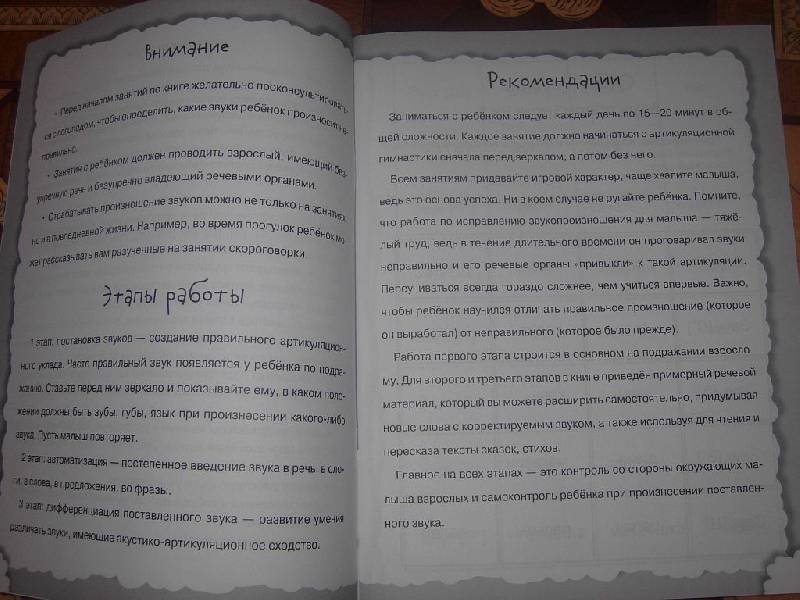 Внимание
• Перед началом занятий по книге желательно проконсультировать-
ся с логопедом, чтобы определить, какие звуки ребёнок произносит не-
правильно.
• Занятия с ребёнком должен проводить взрослый, имеющий без-
упречную речь и безупречно владеющий речевыми органами.
• Отрабатывать произношение звуков можно не только на занятиях,
но и в повседневной жизни. Например, во время прогулок ребёнок мо-
жет рассказывать вам разученные на занятии скороговорки.
Этапы работы
1 этап: постановка звуков — создание правильного артикуляцион-
ного уклада. Часто правильный звук появляется у ребёнка по подра-
жанию. Ставьте перед ним зеркало и показывайте ему, в каком поло-
жении должны быть зубы, губы, язык при произнесении какого-либо
звука. Пусть малыш повторяет.
2 этап: автоматизация — постепенное введение звука в речь: в сло-
ги, в слова, в предложения, во фразы.
3 этап: дифференциация поставленного звука — развитие умения
различать звуки, имеющие акустико-артикуляционное сходство.
Рекомендации
Заниматься с ребёнком следует каждый день по 15—20 минут в об-
щей сложности. Каждое занятие должно начинаться с артикуляционной
гимнастики сначала перед зеркалом, а потом без него.
Всем занятиям придавайте игровой характер, чаще хвалите малыша,
ведь это основа успеха. Ни в коем случае не ругайте ребёнка. Помните,
что работа по исправлению звукопроизношения для малыша — тяжё-
лый труд, ведь в течение длительного времени он проговаривал звуки
неправильно и его речевые органы «привыкли» к такой артикуляции.
Переучиваться всегда гораздо сложнее, чем учиться впервые. Важно,
чтобы ребёнок научился отличать правильное произношение (которое
он выработал) от неправильного (которое было прежде).
Работа первого этапа строится в основном на подражании взросло-
му. Для второго и третьего этапов в книге приведён примерный речевой
материал, который вы можете расширить самостоятельно, придумывая
новые слова с корректируемым звуком, а также используя для чтения и
пересказа тексты сказок, стихов.
Главное на всех этапах — это контроль со стороны окружающих ма-
лыша взрослых и самоконтроль ребёнка при произнесении поставлен-
ного звука.